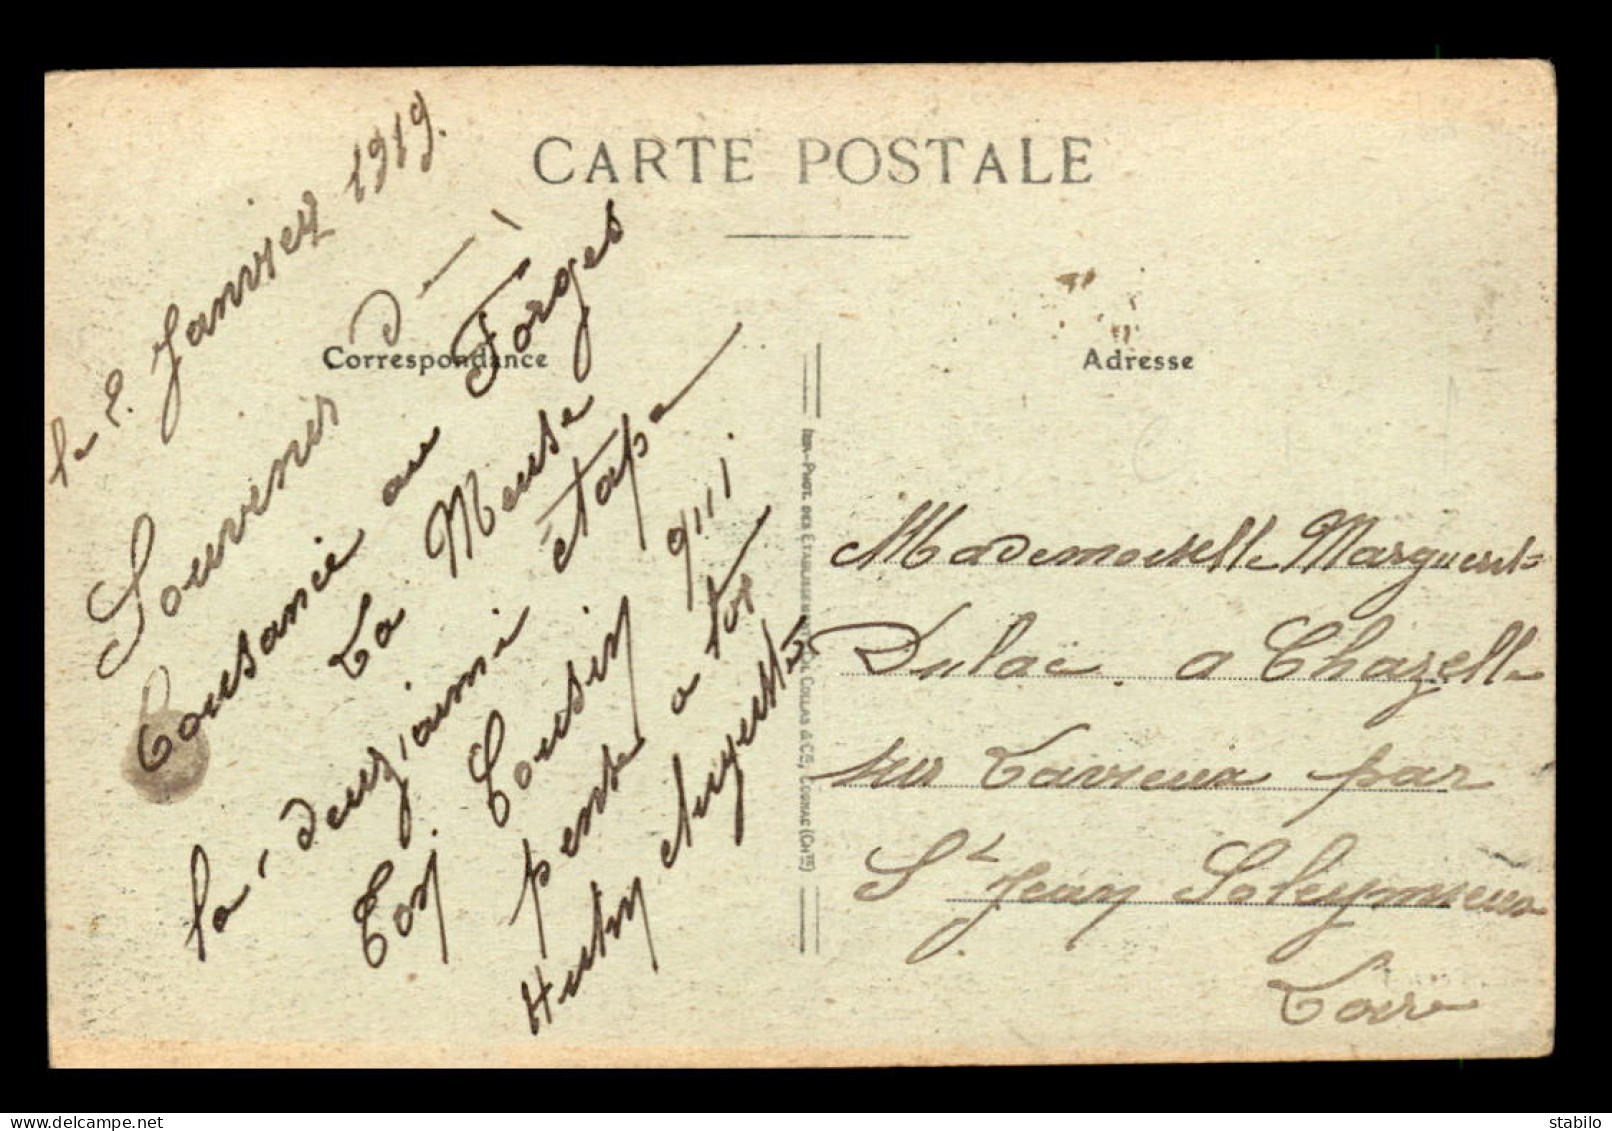 CARTE POSTALE
Correspondance
Adresse
le 2. Janvier 1919.
Souvenir d
Cousance au Forges
La Meuse
la deuziami étape
Ton Cousin qui
pense a toi
Hutin Auguste
Mademoiselle Marguerite
Dulac. a Chazelle
sur Lavieux par
St Jean Soleymieux
Loire
IMP.-PHOT. DES ÉTABLISSEMENTS COLLAS & CIE, COGNAC (CHTE)
delcampe.net
stabilo